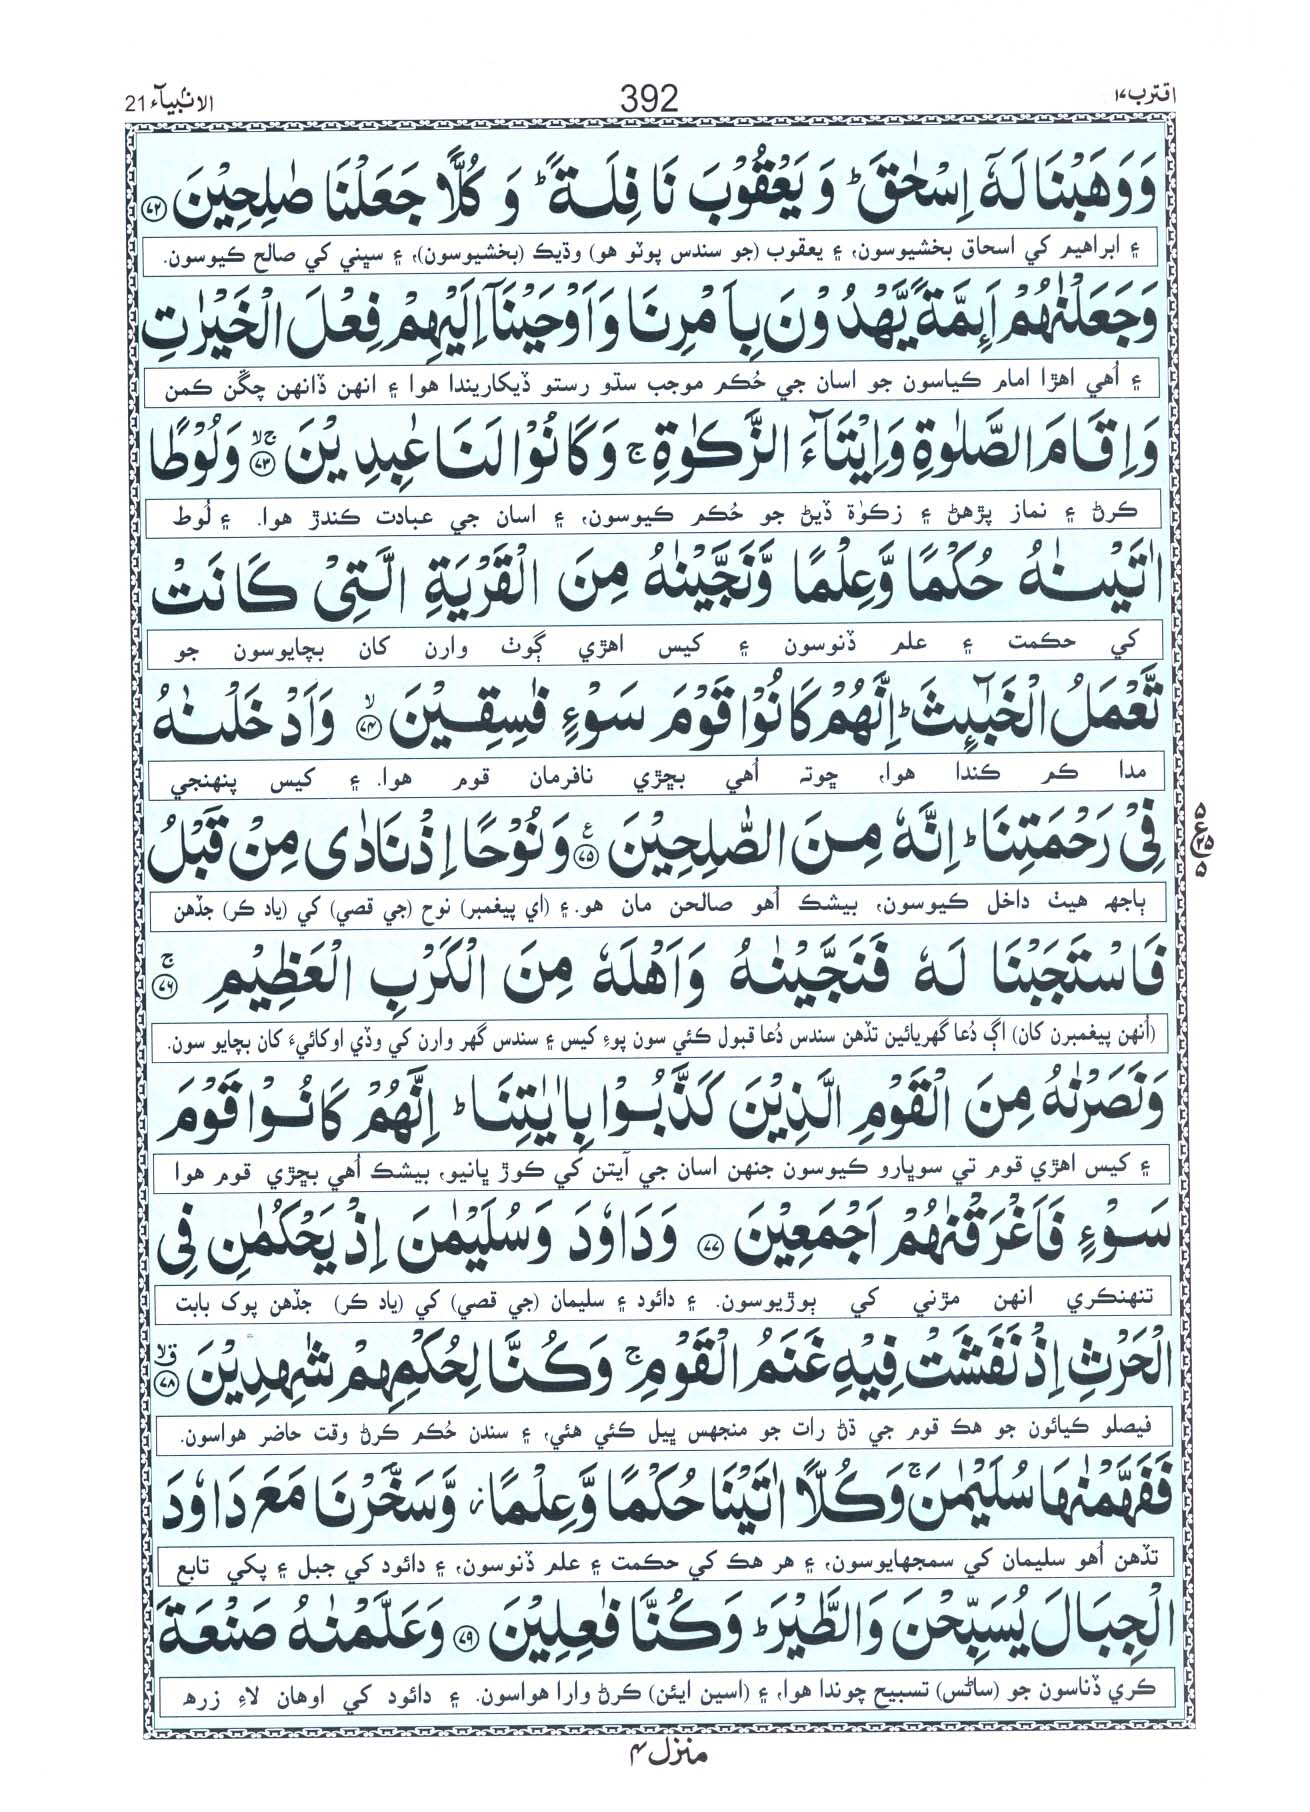 اقترب ١٧
392
الانبيآء 21
وَوَهَبْنَا لَهٗۤ اِسْحٰقَ ؕ وَ يَعْقُوْبَ نَافِلَةً ؕ وَ كُلًّا جَعَلْنَا صٰلِحِيْنَ ﴿۷۲﴾
۽ ابراهيم کي اسحاق بخشيوسون، ۽ يعقوب (جو سندس پوٽو هو) وڌيڪ (بخشيوسون)، ۽ سڀني کي صالح ڪيوسون.
وَجَعَلْنٰهُمْ اَئِمَّةً يَّهْدُوْنَ بِاَمْرِنَا وَاَوْحَيْنَاۤ اِلَيْهِمْ فِعْلَ الْخَيْرٰتِ
۽ اُهي اهڙا امام ڪياسون جو اسان جي حُڪم موجب سڌو رستو ڏيکاريندا هوا ۽ انهن ڏانهن چڱن ڪمن
وَاِقَامَ الصَّلٰوةِ وَاِيْتَآءَ الزَّكٰوةِ ۚ وَكَانُوْا لَنَا عٰبِدِيْنَ ﴿۷۳﴾ ۚۙ وَلُوْطًا
ڪرڻ ۽ نماز پڙهڻ ۽ زڪوٰة ڏيڻ جو حُڪم ڪيوسون، ۽ اسان جي عبادت ڪندڙ هوا. ۽ لُوط
اٰتَيْنٰهُ حُكْمًا وَّعِلْمًا وَّنَجَّيْنٰهُ مِنَ الْقَرْيَةِ الَّتِيْ كَانَتْ
کي حڪمت ۽ علم ڏنوسون ۽ کيس اهڙي ڳوٺ وارن کان بچايوسون جو
تَّعْمَلُ الْخَبٰٓئِثَ ؕ اِنَّهُمْ كَانُوْا قَوْمَ سَوْءٍ فٰسِقِيْنَ ﴿۷۴﴾ ۙ وَاَدْخَلْنٰهُ
مدا ڪم ڪندا هوا، ڇوتہ اُهي بڇڙي نافرمان قوم هوا. ۽ کيس پنهنجي
فِيْ رَحْمَتِنَا ؕ اِنَّهٗ مِنَ الصّٰلِحِيْنَ ﴿۷۵﴾ ع وَنُوْحًا اِذْ نَادٰى مِنْ قَبْلُ
ٻاجهہ هيٺ داخل ڪيوسون، بيشڪ اُهو صالحن مان هو. ۽ (اي پيغمبر) نوح (جي قصي) کي (ياد ڪر) جڏهن
فَاسْتَجَبْنَا لَهٗ فَنَجَّيْنٰهُ وَاَهْلَهٗ مِنَ الْكَرْبِ الْعَظِيْمِ ﴿۷۶﴾ ۚ
(اُنهن پيغمبرن کان) اڳ دُعا گهريائين تڏهن سندس دُعا قبول ڪئي سون پوءِ کيس ۽ سندس گهر وارن کي وڏي اوکائيءَ کان بچايو سون.
وَنَصَرْنٰهُ مِنَ الْقَوْمِ الَّذِيْنَ كَذَّبُوْا بِاٰيٰتِنَا ؕ اِنَّهُمْ كَانُوْا قَوْمَ
۽ کيس اهڙي قوم تي سوڀارو ڪيوسون جنهن اسان جي آيتن کي ڪوڙ ڀانيو، بيشڪ اُهي بڇڙي قوم هوا
سَوْءٍ فَاَغْرَقْنٰهُمْ اَجْمَعِيْنَ ﴿۷۷﴾ وَدَاوٗدَ وَسُلَيْمٰنَ اِذْ يَحْكُمٰنِ فِي
تنهنڪري انهن مڙني کي ٻوڙيوسون. ۽ دائود ۽ سليمان (جي قصي) کي (ياد ڪر) جڏهن پوک بابت
الْحَرْثِ اِذْ نَفَشَتْ فِيْهِ غَنَمُ الْقَوْمِ ۚ وَكُنَّا لِحُكْمِهِمْ شٰهِدِيْنَ ﴿۷۸﴾
فيصلو ڪيائون جو هڪ قوم جي ڌڻ رات جو منجهس ڀيل ڪئي هئي، ۽ سندن حُڪم ڪرڻ وقت حاضر هواسون.
فَفَهَّمْنٰهَا سُلَيْمٰنَ ۚ وَكُلًّا اٰتَيْنَا حُكْمًا وَّعِلْمًا ؗ وَّسَخَّرْنَا مَعَ دَاوٗدَ
تڏهن اُهو سليمان کي سمجهايوسون، ۽ هر هڪ کي حڪمت ۽ علم ڏنوسون، ۽ دائود کي جبل ۽ پکي تابع
الْجِبَالَ يُسَبِّحْنَ وَالطَّيْرَ ؕ وَكُنَّا فٰعِلِيْنَ ﴿۷۹﴾ وَعَلَّمْنٰهُ صَنْعَةَ
ڪري ڏناسون جو (ساڻس) تسبيح چوندا هوا، ۽ (اسين ايئن) ڪرڻ وارا هواسون. ۽ دائود کي اوهان لاءِ زرهہ
منزل ۴